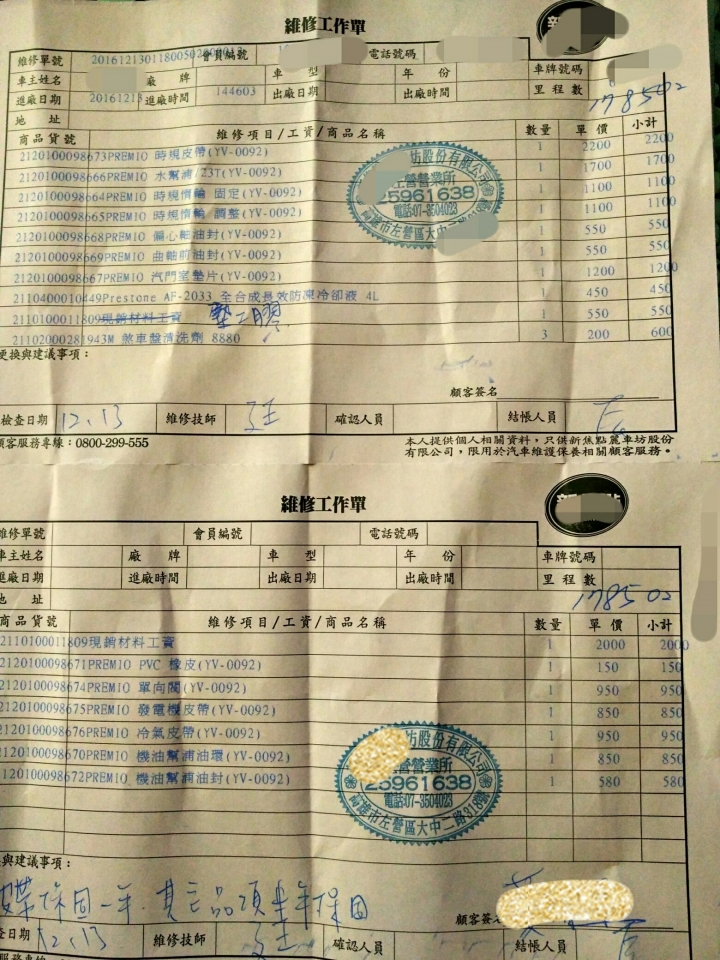 維修工作單
維修單號 會員編號 電話號碼
車主姓名 廠牌 車型 年份 車牌號碼
進廠日期 20161213 進廠時間 144603 出廠日期 出廠時間 里程數 178502
地址
商品貨號 維修項目/工資/商品名稱 數量 單價 小計
2120100098673PREMIO 時規皮帶(YV-0092) 1 2200 2200
2120100098666PREMIO 水幫浦/23T(YV-0092) 1 1700 1700
2120100098664PREMIO 時規惰輪 固定(YV-0092) 1 1100 1100
2120100098665PREMIO 時規惰輪/調整(YV-0092) 1 1100 1100
2120100098668PREMIO 偏心軸油封(YV-0092) 1 550 550
2120100098669PREMIO 曲軸前油封(YV-0092) 1 550 550
2120100098667PREMIO 汽門室墊片(YV-0092) 1 1200 1200
2110400010449Prestone AF-2033 全合成長效防凍冷卻液 4L 1 450 450
2110100011809現銷材料工資 墊片膠 1 550 550
21102000281943M 煞車盤清洗劑 8880 3 200 600
更換與建議事項:
坊股份有限公司
左營營業所
25961638
電話:07-3504023
高雄市左營區大中二
顧客簽名
檢查日期 12、13 維修技師 確認人員 結帳人員
顧客服務專線:0800-299-555
本人提供個人相關資料,只供新焦點麗車坊股份
有限公司,限用於汽車維護保養相關顧客服務。
維修工作單
維修單號 會員編號 電話號碼
車主姓名 廠牌 車型 年份 車牌號碼
進廠日期 進廠時間 出廠日期 出廠時間 里程數 178502
地址
商品貨號 維修項目/工資/商品名稱 數量 單價 小計
2110100011809現銷材料工資 1 2000 2000
2120100098671PREMIO PVC 橡皮(YV-0092) 1 150 150
2120100098674PREMIO 單向閥(YV-0092) 1 950 950
2120100098675PREMIO 發電機皮帶(YV-0092) 1 850 850
2120100098676PREMIO 冷氣皮帶(YV-0092) 1 950 950
2120100098670PREMIO 機油幫浦油環(YV-0092) 1 850 850
2120100098672PREMIO 機油幫浦油封(YV-0092) 1 580 580
坊股份有限公司
營營業所
25961638
電話:07-3504023
高雄市左營區大中二路318號
與建議事項:
保固一年,其它品項半年保固
顧客簽名
查日期 12、13 維修技師 確認人員 結帳人員